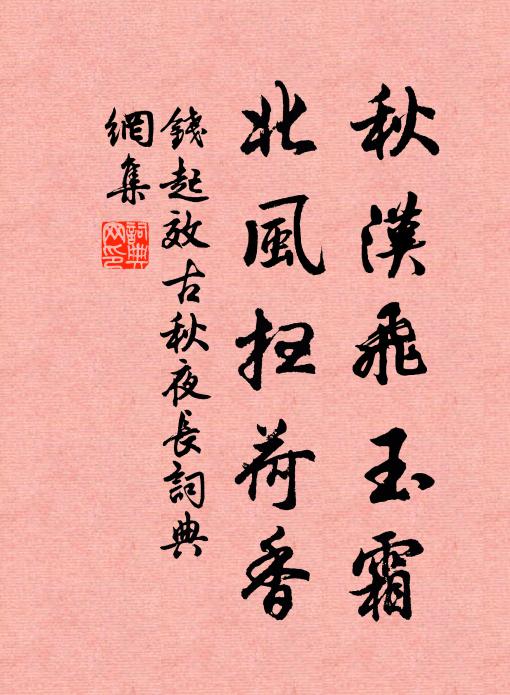 秋漢飛玉霜
北風扫荷香
錢起效古秋夜長詞典
網集
詞典
网印